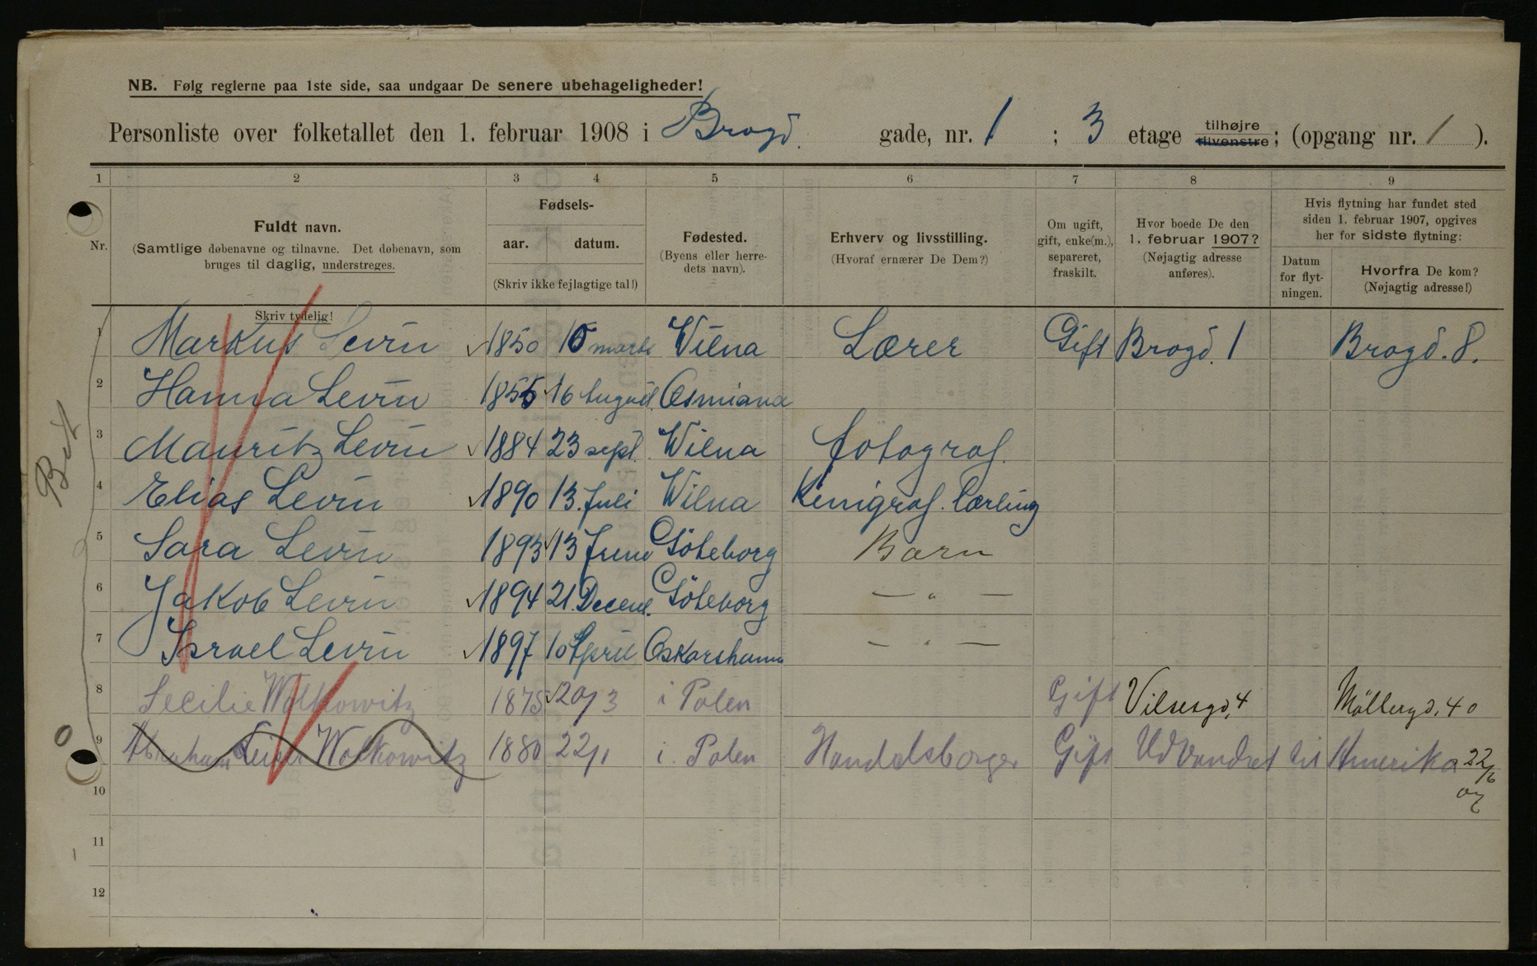 NB. Følg reglerne paa 1ste side, saa undgaar De senere ubehageligheder!
Personliste over folketallet den 1. februar 1908 i Brogd. gade, nr. 1 ; 3 etage tilhøjre tilvenstre ; (opgang nr. 1 ).
1 2 3 4 5 6 7 8 9
Nr.
Fuldt navn.
(Samtlige døbenavne og tilnavne. Det døbenavn, som
bruges til daglig, understreges.
Skriv tydelig!
Fødsels-
aar. datum.
(Skriv ikke fejlagtige tal!)
Fødested.
(Byens eller herre-
dets navn).
Erhverv og livsstilling.
(Hvoraf ernærer De Dem?)
Om ugift,
gift, enke(m.),
separeret,
fraskilt.
Hvor boede De den
1. februar 1907?
(Nøjagtig adresse
anføres).
Hvis flytning har fundet sted
siden 1. februar 1907, opgives
her for sidste flytning:
Datum
for flyt-
ningen.
Hvorfra De kom?
(Nøjagtig adresse!)
1 Markus Levin 1850 10 marts Wilna Lærer Gift Brogd. 1 Brogd. 8.
2 Hanna Levin 1855 16 August Osmiana
3 Mauritz Levin 1884 23 sept. Wilna fotograf.
4 Elias Levin 1890 13. Juli Wilna Kemigraf. Lærling
5 Sara Levin 1893 13 Juni Göteborg Barn
6 Jakob Levin 1894 21. Decem. Göteborg — " —
7 Israel Levin 1897 10 April Oskarshamn — " —
8 Cecilie Wolkowitz 1875 20/3 i Polen Gift Vilsesgd. 4 Möllergd. 40
9 Abraham Wolkowitz 1880 22/1 i Polen Handelsborger Gift Udvandret til Amerika 22/6
07
10
11
12